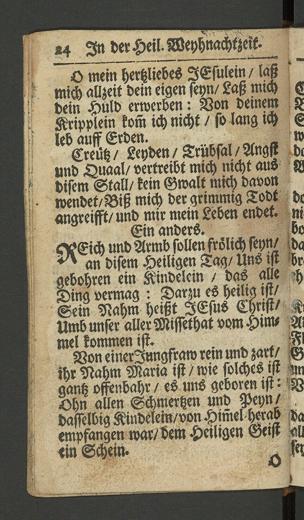 24 In der Heil. Weyhnachtzeit.
O mein hertzliebes JEsulein / laß
mich allzeit dein eigen seyn / Laß mich
dein Huld erwerben : Von deinem
Kripplein kom̃ ich nicht / so lang ich
leb auff Erden.
Creütz / Leyden / Trübsal / Angst
und Quaal / vertreibt mich nicht aus
disem Stall / kein Gwalt mich davon
wendet / Biß mich der grimmig Todt
angreifft / und mir mein Leben endet.
Ein anders.
REich und Armb sollen frölich seyn /
an disem Heiligen Tag / Uns ist
gebohren ein Kindelein / das alle
Ding vermag : Darzu es heilig ist /
Sein Nahm heißt JEsus Christ /
Umb unser aller Missethat vom Him-
mel kommen ist.
Von einer Jungfraw rein und zart /
ihr Nahm Maria ist / wie solches ist
gantz offenbahr / es uns geboren ist :
Ohn allen Schmertzen und Peyn /
dasselbig Kindelein / von Him̃el herab
empfangen war / dem Heiligen Geist
ein Schein.
O